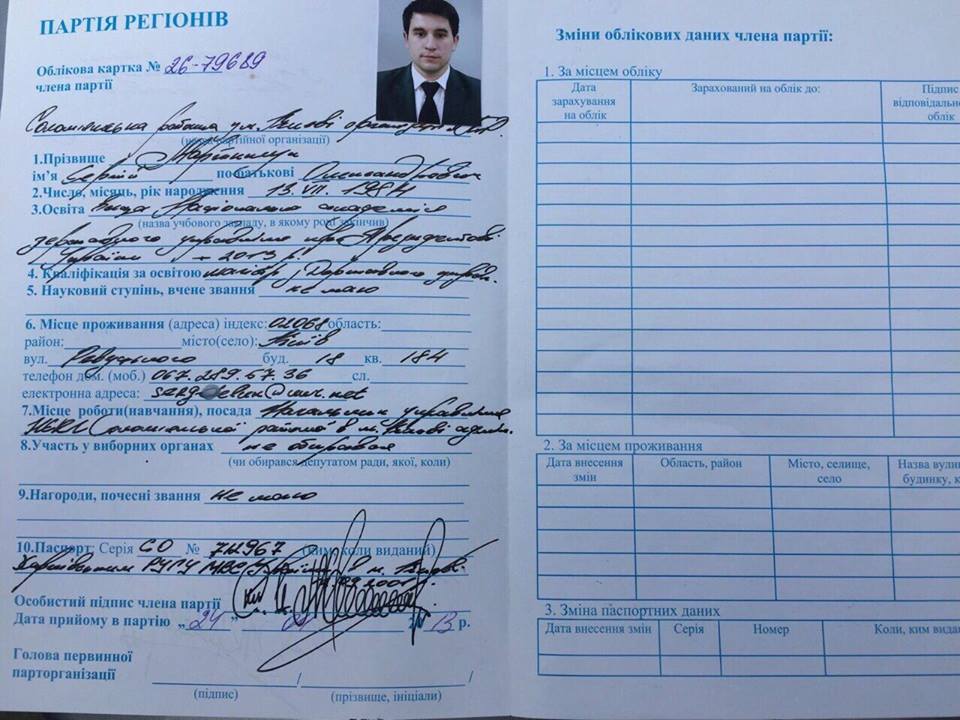 ПАРТІЯ РЕГІОНІВ
Облікова картка № 26-79689
члена партії
Солом'янська районна у м. Києві організація
(назва партійної організації)
1.Прізвище
ім'я Сергій по батькові Олександрович
2.Число, місяць, рік народження 13. VII. 1984
3.Освіта Вища Національна академія
(назва учбового закладу, в якому році закінчив)
державного управління при Президентові
України - 2013 р.
4. Кваліфікація за освітою магістр Державного управ.
5. Науковий ступінь, вчене звання не маю
6. Місце проживання (адреса) індекс: 02068 область:
район: місто(село): Київ
вул. Ревуцького буд. 18 кв. 184
телефон дом. (моб.) 067.289.57.36 сл.
електронна адреса:
7.Місце роботи(навчання), посада Начальник управління
Солом'янської районної в м. Києві адмін.
8.Участь у виборних органах не обирався
(чи обирався депутатом ради, якої, коли)
9.Нагороди, почесні звання не маю
10.Паспорт: Серія СО № (ким, коли виданий)
Харківським РУГУ МВС України в м. Києві
Особистий підпис члена партії
Дата прийому в партію „ 24 ” 13 р.
Голова первинної
парторганізації / /
(підпис) (прізвище, ініціали)
Зміни облікових даних члена партії:
1. За місцем обліку
Дата зарахування на облік Зарахований на облік до: Підпис відповідально облік
2. За місцем проживання
Дата внесення змін Область, район Місто, селище, село Назва вули будинку, к
3. Зміна паспортних даних
Дата внесення змін Серія Номер Коли, ким вида